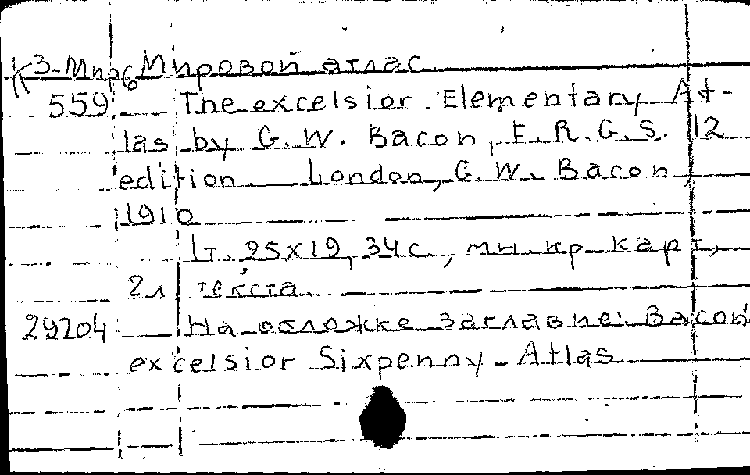 К3-Мир6 Мировой атлас
559 The excelsior Elementary At-
las by G. W. Bacon, F. R. G. S. 12
edition London, G. W. Bacon
1910
1т. 25х19, 34с., мн. кр. карт,
2л текста
29204 На обложке заглавие: Bacon
excelsior Sixpenny-Atlas